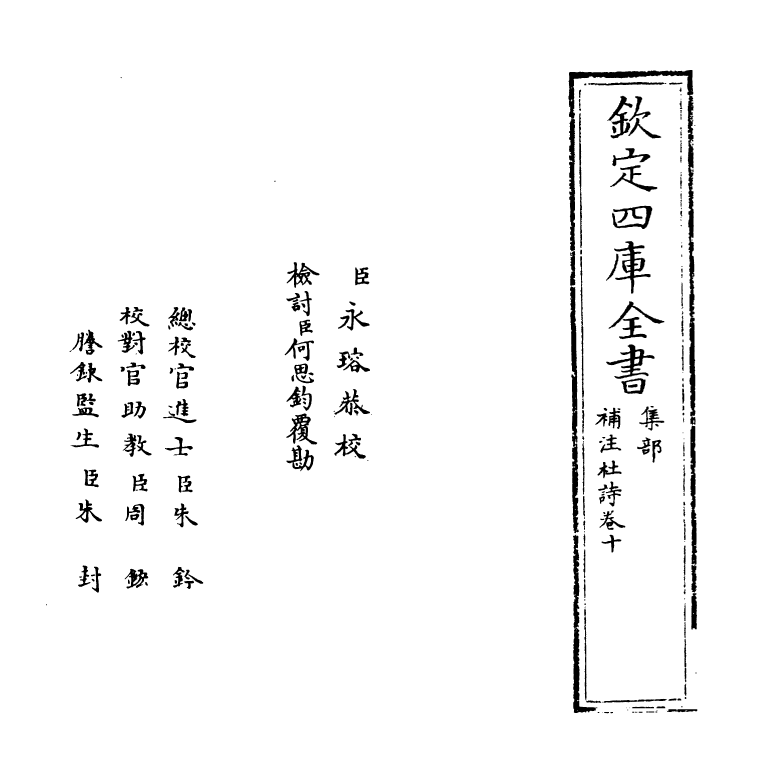 欽定四庫全書
集部
補注杜詩卷十
臣永瑢恭校
檢討臣何思鈞覆勘
總校官進士臣朱鈐
校對官助教臣周鋐
謄錄監生臣朱封